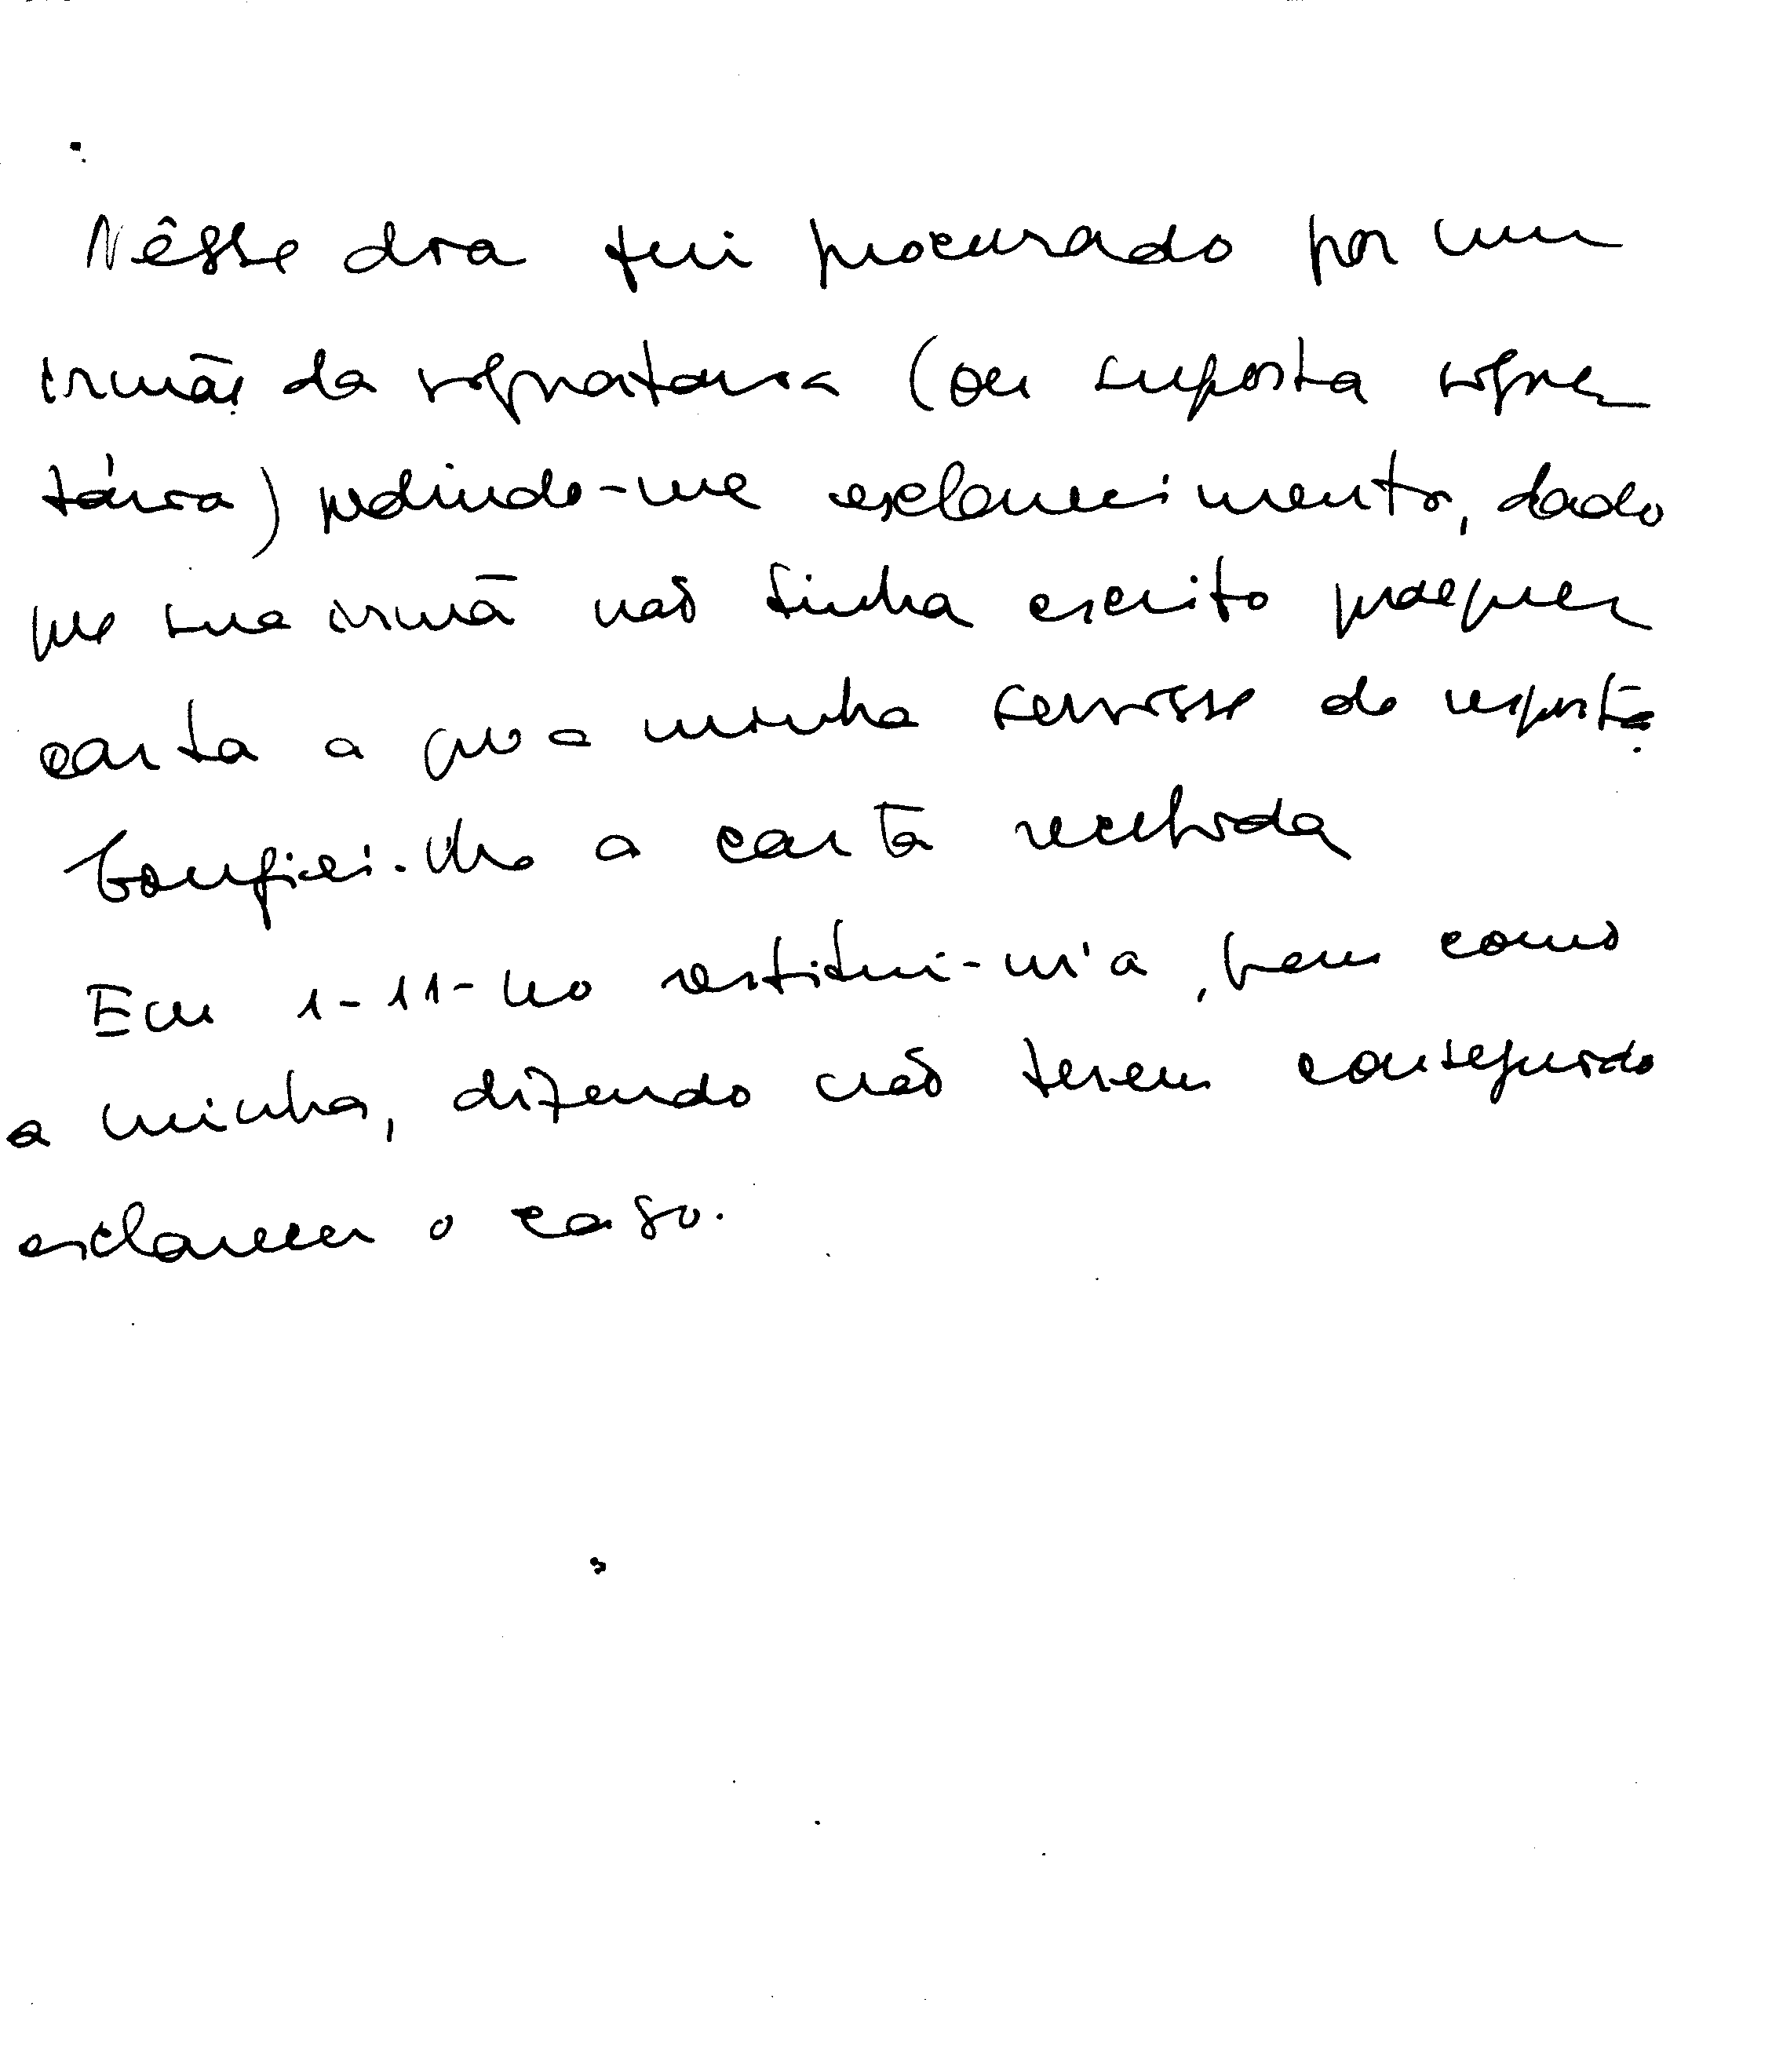 Nêsse dia fui procurado por um
irmão da signatária (ou suposta signa-
tária) pedindo-me esclarecimento, dado
que sua irmã não tinha escrito qualquer
carta a que a minha servisse de resposta.
Confiei-lhe a carta recebida
Em 1-11-40 restitui-m'a, bem como
a minha, dizendo não terem conseguido
esclarecer o caso.